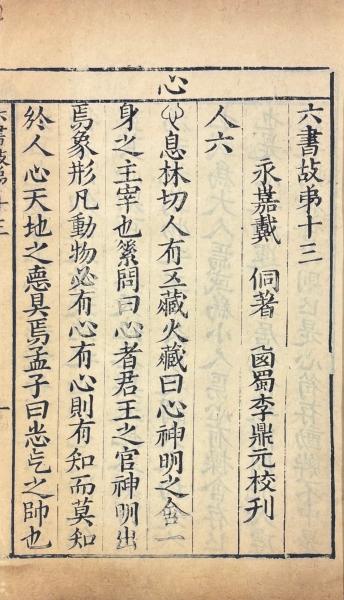 心
六書故弟十三
永嘉戴 侗著 𠧧蜀李鼎元校刊
人六
息林切人有五藏火藏曰心神明之舍一
身之主宰也素問曰心者君王之官神明出
焉象形凡動物必有心有心則有知而莫知
於人心天地之悳具焉孟子曰志气之帥也
六書故弟十三